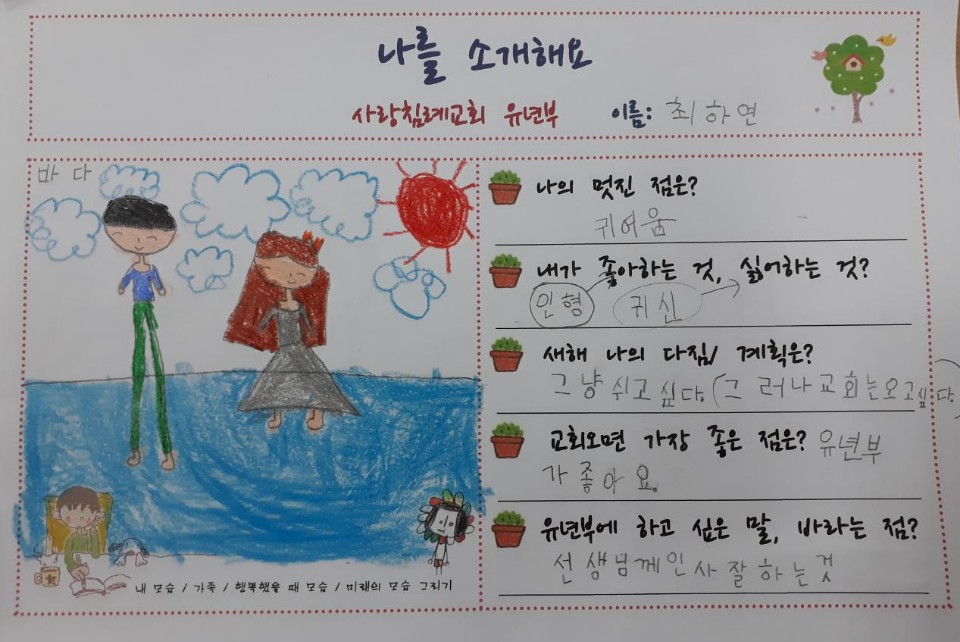 나를 소개해요
사랑침례교회 유년부 이름: 최하연
바다
나의 멋진 점은?
귀여움
내가 좋아하는 것, 싫어하는 것?
인형 귀신
새해 나의 다짐/ 계획은?
그냥 쉬고싶다.(그러나교회는오고싶다.)
교회오면 가장 좋은 점은? 유년부
가 좋아요.
유년부에 하고 싶은 말, 바라는 점?
선생님께인사잘하는것
내 모습 / 가족 / 행복했을 때 모습 / 미래의 모습 그리기